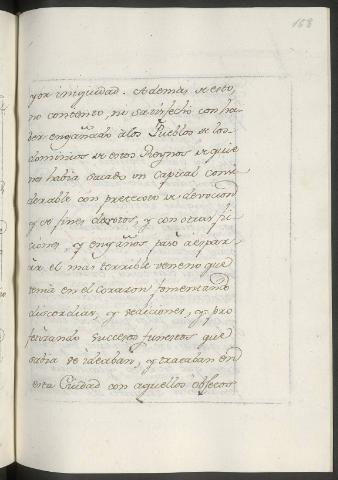 168
yor iniquidad. Ademas de esto,
no contento, ni satisfecho con ha-
ber engañado â los Pueblos de los
dominios de estos Reynos de que
nos habia sacado un Capital consi
derable con pretexto de devocion
y de fines devotos, y con otras fic
ciones, y engaños pasò a espar
cir el mas terrible veneno que
tenia en el Corazon fomentando
discordias, y sediciones, y pro
fetizando succesos funestos que
sabia se ideaban, y trataban en
esta Ciudad con aquellos obsecos